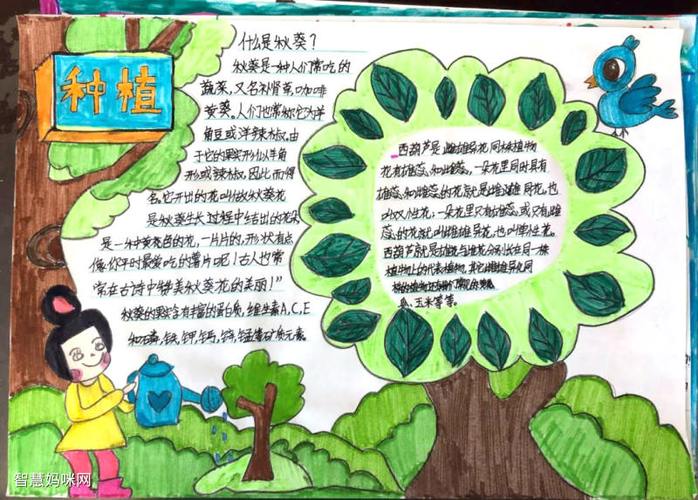 种植
什么是秋葵?
秋葵是一种人们常吃的
蔬菜,又名补肾菜,咖啡
黄葵。人们也常称它为羊
角豆或洋辣椒。由
于它的果实形似羊角
形或辣椒,因此而得
名。它开出的花叫做秋葵花
是秋葵生长过程中结出的花朵,
是一种黄色的花,一片片的,形状有点
像你平时最爱吃的薯片呢!古人也常
常在古诗中赞美秋葵花的美丽!
秋葵的果实含有丰富的蛋白质,维生素A,C,E
和磷,铁,钾,钙,锌,锰等矿质元素。
西葫芦是雌雄异花同株植物
花有雄蕊,和雌蕊,一朵花里同时具有
雄蕊,和雌蕊的花就是雌雄同花,也
叫双性花,一朵花里只有雄蕊,或只有雌
蕊,的花就叫雌雄异花,也叫单性花。
西葫芦就是雄花与雌花分别长在同一株
植物上的代表植物。其它雌雄异花同
瓜,玉米等等。
智慧妈咪网